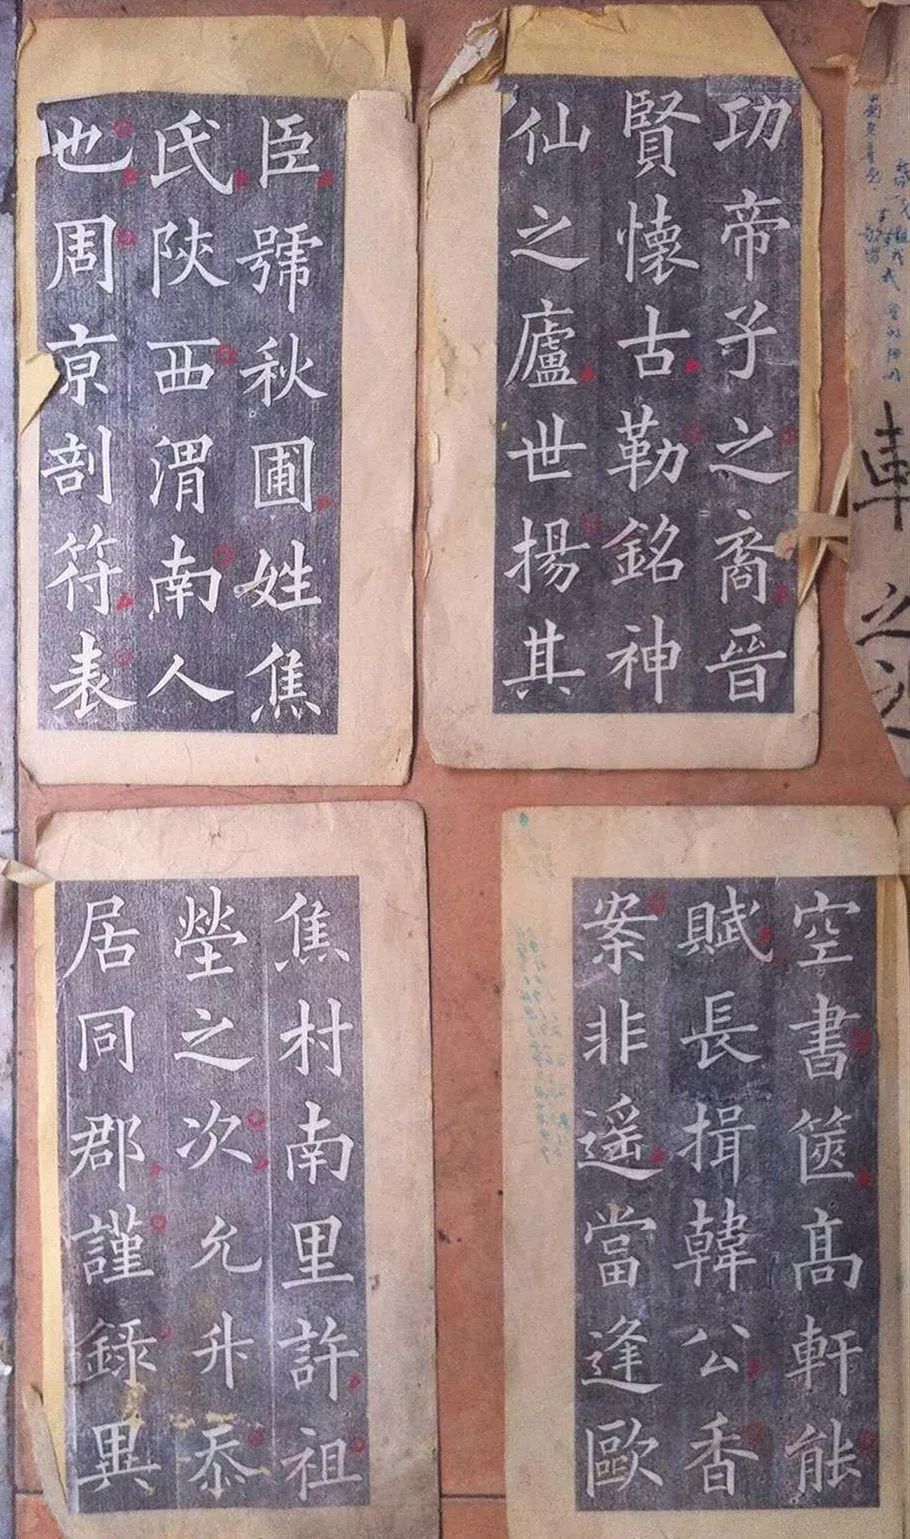 功帝子之裔晉
賢懷古勒銘神
仙之廬世揚其
臣號秋圃姓焦
氏陝西渭南人
也周京剖符表
空書篋高軒能
賦長揖韓公香
案非遥當逢歐
焦村南里許祖
塋之次允升忝
居同郡謹録異
車
之